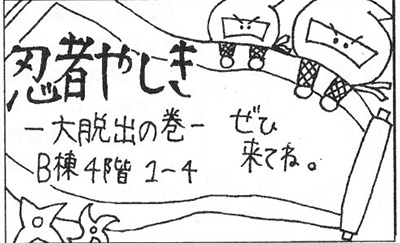 忍者やしき
－大脱出の巻－
B棟4階 1~4
ぜひ
来てね。